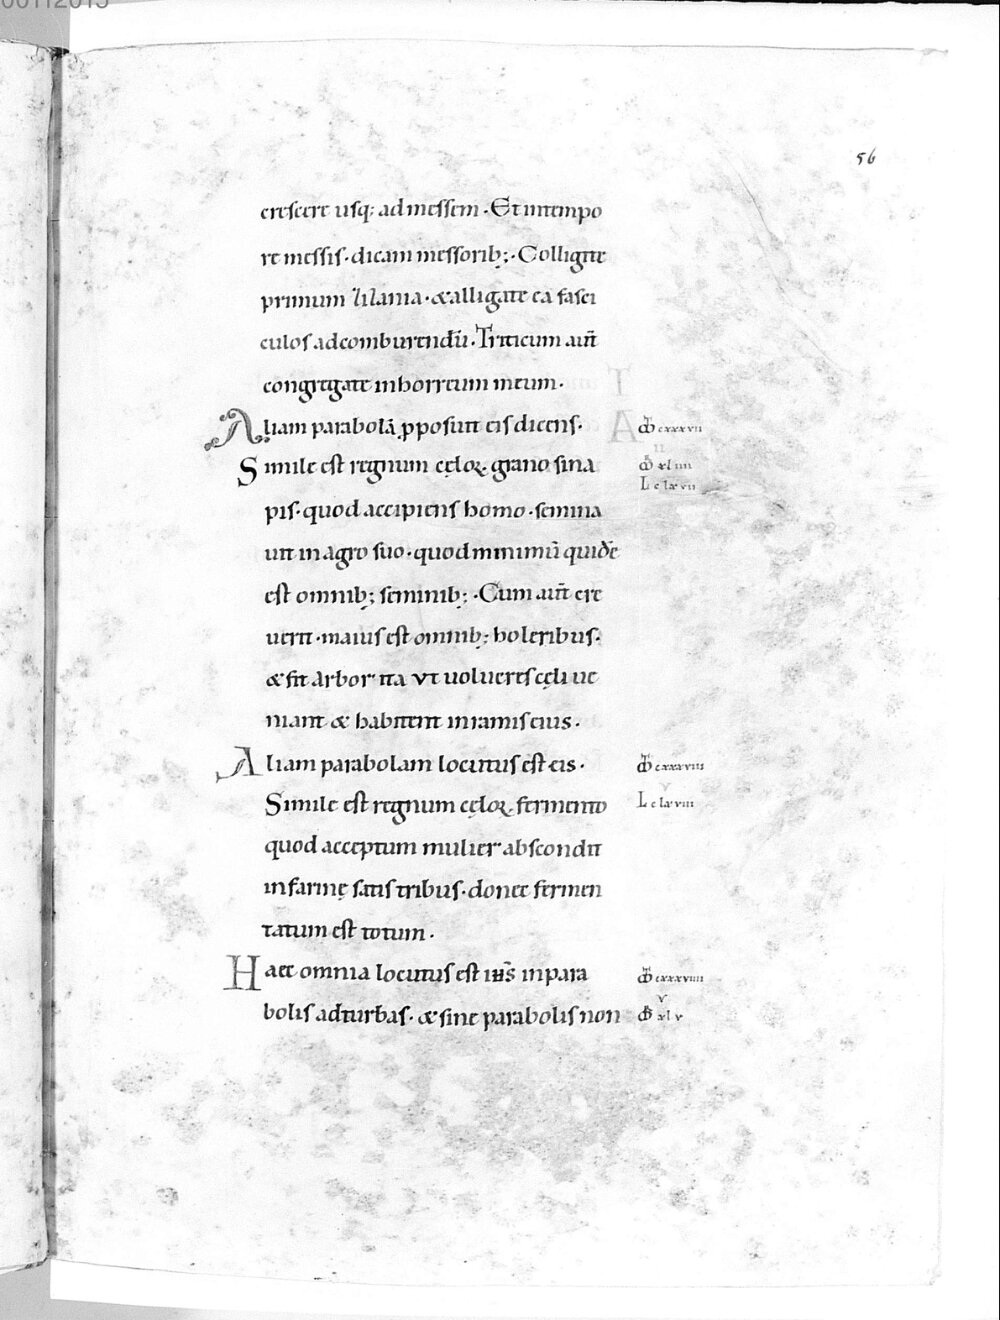 56
crescere usq; ad messem · Et in tempo
re messis · dicam messorib; · Colligite
primum zizania · & alligate ea fasci
culos ad comburendū · Triticum aut̄
congregate in horreum meum ·
Aliam parabolā ꝓposuit eis dicens ·
Simile est regnum cęloꝝ grano sina
pis · quod accipiens homo · semina
uit in agro suo · quod minimū quidē
est omnib; seminib; · Cum aut̄ cre
uerit · maius est omnib; holeribus ·
& fit arbor ita vt uolucres cęli ue
niant & habitent in ramis eius ·
Aliam parabolam locutus est eis ·
Simile est regnum cęloꝝ fermento
quod acceptum mulier abscondit
in farinę satis tribus · donec fermen
tatum est totum ·
Haec omnia locutus est ih̅s in para
bolis ad turbas · & sine parabolis non
cxxxvii
xliiii
L c lxvii
cxxxviii
v
L c lxviii
cxxxviiii
v
xlv